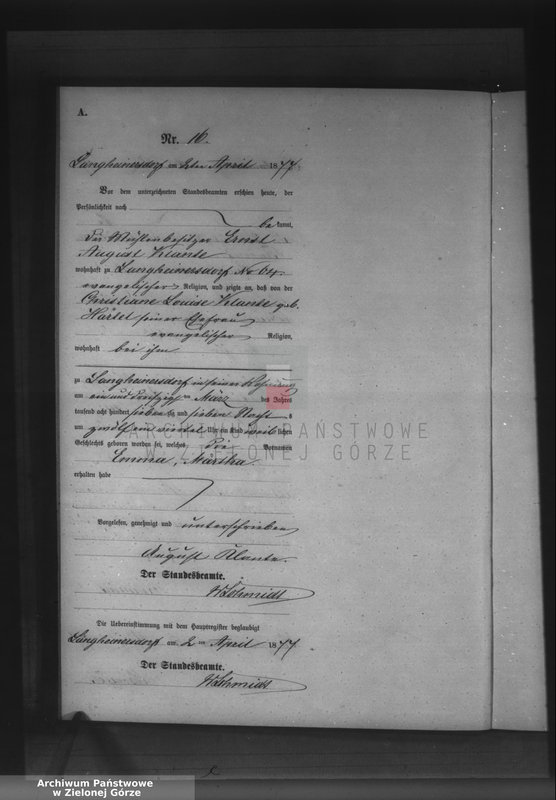 A.
Nr. 16.
Langheinersdorf am 2ten April 1877.
Vor dem unterzeichneten Standesbeamten erschien heute, der
Persönlichkeit nach
bekannt,
der Mühlenbesitzer Ernst
August Klante
wohnhaft zu Langheinersdorf No 64.
evangelischer Religion, und zeigte an, daß von der
Christiane Louise Klante geb.
Härtel seiner Ehefrau
evangelischer Religion,
wohnhaft bei ihm
zu Langheinersdorf in seiner Wohnung
am ein und dreißigsten März des Jahres
tausend acht hundert siebenzig und sieben Nachts
um zwölf ein viertel Uhr ein Kind weiblichen
Geschlechts geboren worden sei, welches Vornamen
Emma, Martha
erhalten habe
Vorgelesen, genehmigt und unterschrieben
August Klante.
Der Standesbeamte.
WSchmidt
Die Uebereinstimmung mit dem Hauptregister beglaubigt
Langheinersdorf am 2ten April 1877.
Der Standesbeamte.
WSchmidt
ARCHIWUM PAŃSTWOWE
W ZIELONEJ GÓRZE
Archiwum Państwowe
w Zielonej Górze